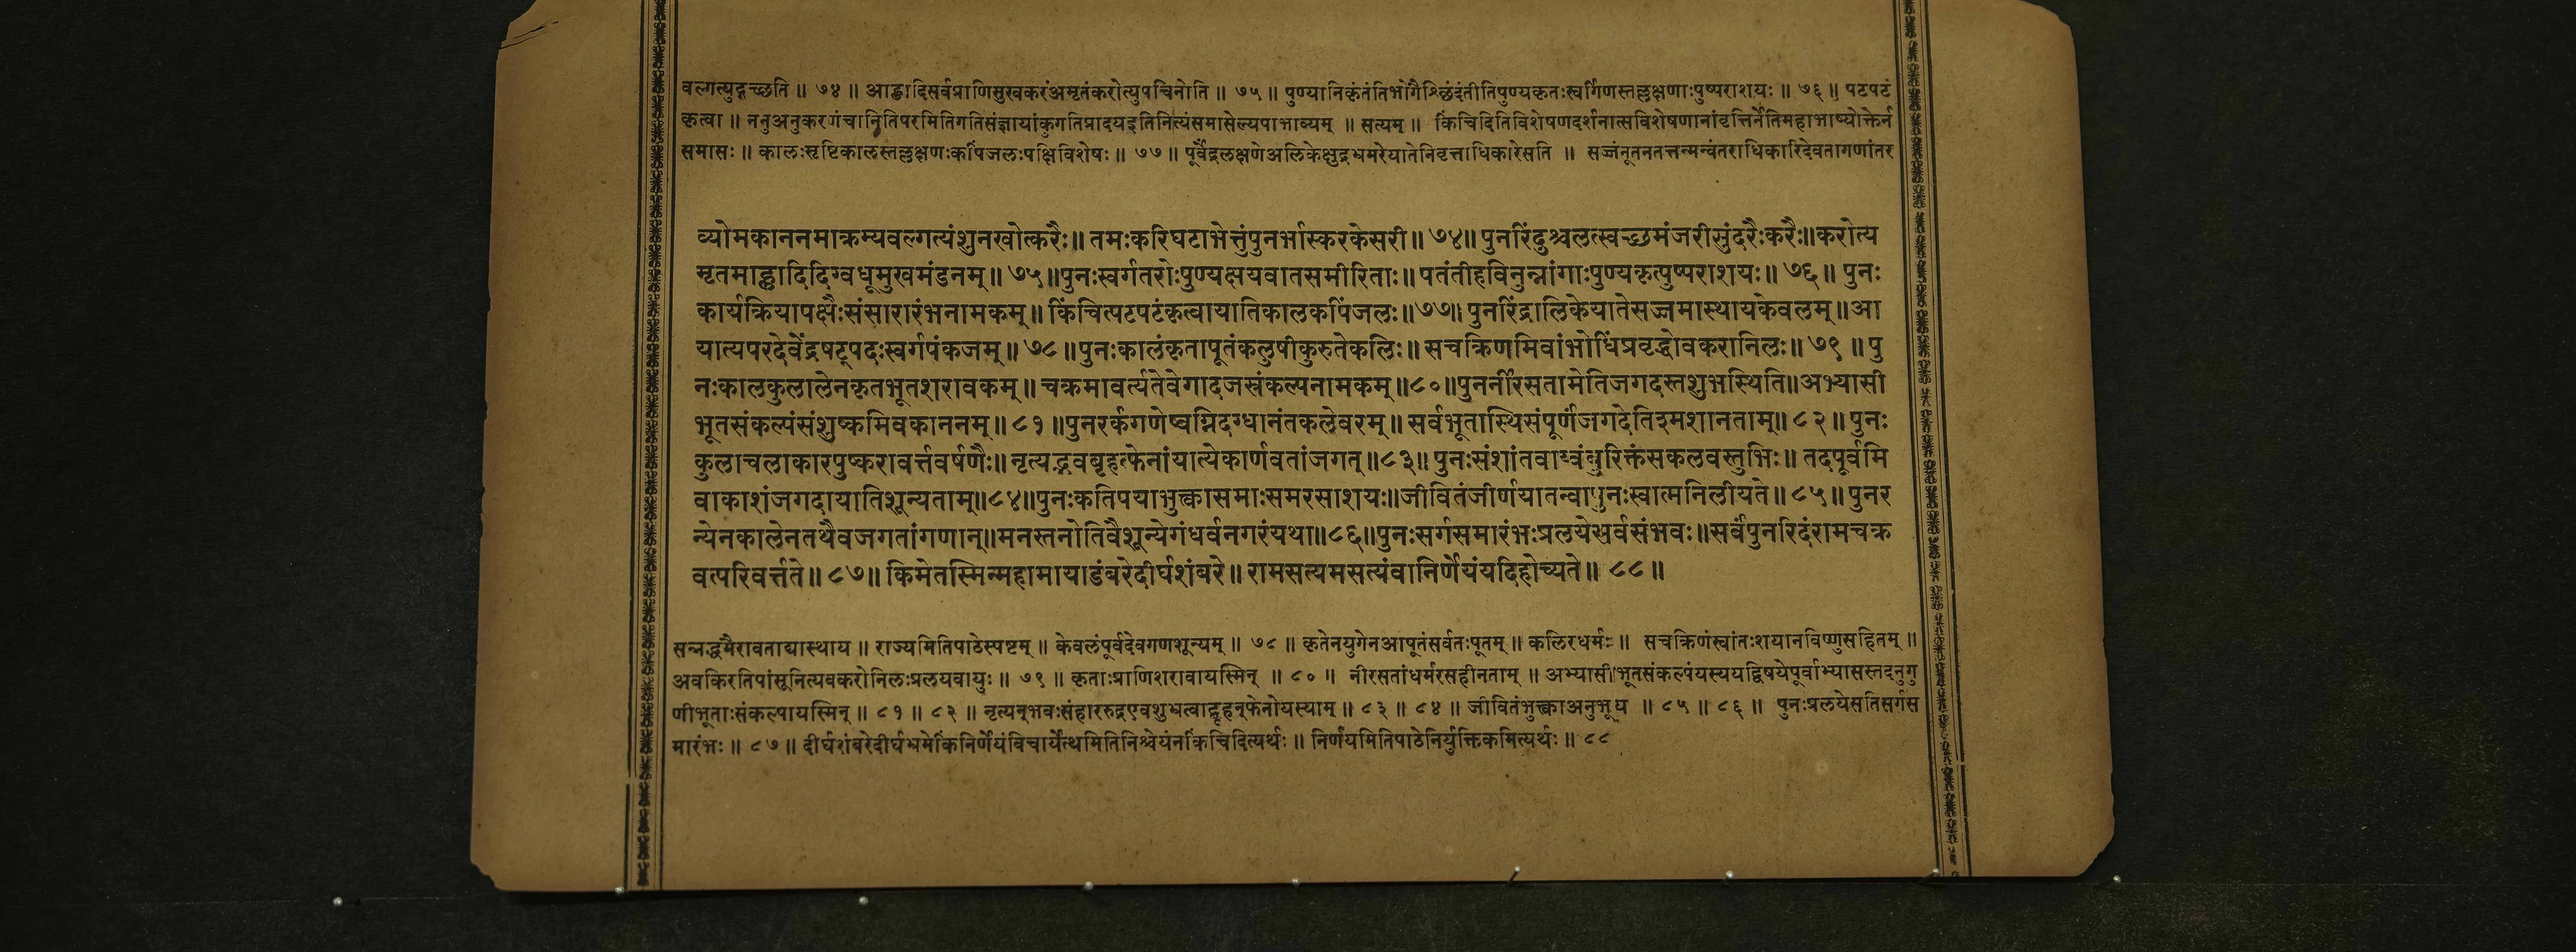 वल्गत्युद्गच्छति ॥ ७४ ॥ आह्लादिसर्वप्राणिसुखकरंअमृतंकरोत्युपचिनोति ॥ ७५ ॥ पुण्यानिकृंतंतिभोगैश्छिंदंतीतिपुण्यकृतःस्वर्गिणस्तल्लक्षणाःपुष्पराशयः ॥ ७६ ॥ पटपटं
कृत्वा ॥ ननुअनुकरणंचानितिपरमितिगतिसंज्ञायांकुगतिप्रादयइतिनित्यंसमासेल्यपाभाव्यम् ॥ सत्यम् ॥ किंचिदितिविशेषणदर्शनात्सविशेषणानांवृत्तिर्नेतिमहाभाष्योक्तेर्न
समासः ॥ कालःसृष्टिकालस्तल्लक्षणःकपिंजलःपक्षिविशेषः ॥ ७७ ॥ पूर्वेंद्रलक्षणेअलिकेक्षुद्रभ्रमरेयातेनिवृत्ताधिकारेसति ॥ सज्जंनूतनतत्तन्मन्वंतराधिकारिदेवतागणांतर
व्योमकाननमाक्रम्यवल्गत्यंशुनखोत्करैः॥ तमःकरिघटाभेत्तुंपुनर्भास्करकेसरी॥ ७४॥ पुनरिंदुश्चलत्स्वच्छमंजरीसुंदरैःकरैः॥करोत्य
मृतमाह्लादिदिग्वधूमुखमंडनम्॥ ७५॥पुनःस्वर्गतरोःपुण्यक्षयवातसमीरिताः॥ पतंतीहविनुन्नांगाःपुण्यकृत्पुष्पराशयः॥ ७६॥ पुनः
कार्यक्रियापक्षैःसंसारारंभनामकम्॥ किंचित्पटपटंकृत्वायातिकालकपिंजलः॥७७॥ पुनरिंद्रालिकेयातेसज्जमास्थायकेवलम्॥आ
यात्यपरदेवेंद्रषट्पदःस्वर्गपंकजम्॥ ७८॥पुनःकालंकृतापूतंकलुषीकुरुतेकलिः॥ सचक्रिणमिवांभोधिंप्रवृद्धोवकरानिलः॥ ७९ ॥ पु
नःकालकुलालेनकृतभूतशरावकम्॥ चक्रमावर्त्यतेवेगादजस्रंकल्पनामकम्॥८०॥पुनर्नीरसतामेतिजगदस्तशुभस्थिति॥अभ्यासी
भूतसंकल्पंसंशुष्कमिवकाननम्॥ ८१॥पुनरर्कगणेष्वग्निदग्धानंतकलेवरम्॥ सर्वभूतास्थिसंपूर्णंजगदेतिश्मशानताम्॥ ८२॥ पुनः
कुलाचलाकारपुष्करावर्त्तवर्षणैः॥ नृत्यद्भवबृहत्फेनांयात्येकार्णवतांजगत्॥८३॥ पुनःसंशांतवाय्वंबुरिक्तंसकलवस्तुभिः॥ तदपूर्वमि
वाकाशंजगदायातिशून्यताम्॥८४॥पुनःकतिपयाभुक्त्वासमाःसमरसाशयः॥जीवितंजीर्णयातन्वापुनःस्वात्मनिलीयते॥ ८५॥ पुनर
न्येनकालेनतथैवजगतांगणान्॥मनस्तनोतिवैशून्येगंधर्वनगरंयथा॥८६॥पुनःसर्गसमारंभःप्रलयेसर्वसंभवः॥सर्वंपुनरिदंरामचक्र
वत्परिवर्त्तते॥ ८७॥ किमेतस्मिन्महामायाडंबरेदीर्घशंबरे॥ रामसत्यमसत्यंवानिर्णेयंयदिहोच्यते॥ ८८॥
सन्नद्धमैरावताद्यास्थाय ॥ राज्यमितिपाठेस्पष्टम् ॥ केवलंपूर्वदेवगणशून्यम् ॥ ७८ ॥ कृतेनयुगेनआपूतंसर्वतःपूतम् ॥ कलिरधर्मः ॥ सचक्रिणंस्वांतःशयानविष्णुसहितम् ॥
अवकिरतिपांसूनित्यवकरोनिलःप्रलयवायुः ॥ ७९ ॥ कृताःप्राणिशरावायस्मिन् ॥ ८० ॥ नीरसतांधर्मरसहीनताम् ॥ अभ्यासीभूतसंकल्पंयस्ययद्विषयेपूर्वाभ्यासस्तदनुगु
णीभूताःसंकल्पायस्मिन् ॥ ८१ ॥ ८२ ॥ नृत्यन्भवःसंहाररुद्रएवशुभ्रत्वाद्बृहन्फेनोयस्याम् ॥ ८३ ॥ ८४ ॥ जीवितंभुक्त्वाअनुभूय ॥ ८५ ॥ ८६ ॥ पुनःप्रलयेसतिसर्गस
मारंभः ॥ ८७ ॥ दीर्घशंबरेदीर्घभ्रमेकिंनिर्णेयंविचार्येत्थमितिनिश्चेयंनकिंचिदित्यर्थः ॥ निर्णयमितिपाठेनिर्युक्तिकमित्यर्थः ॥ ८८